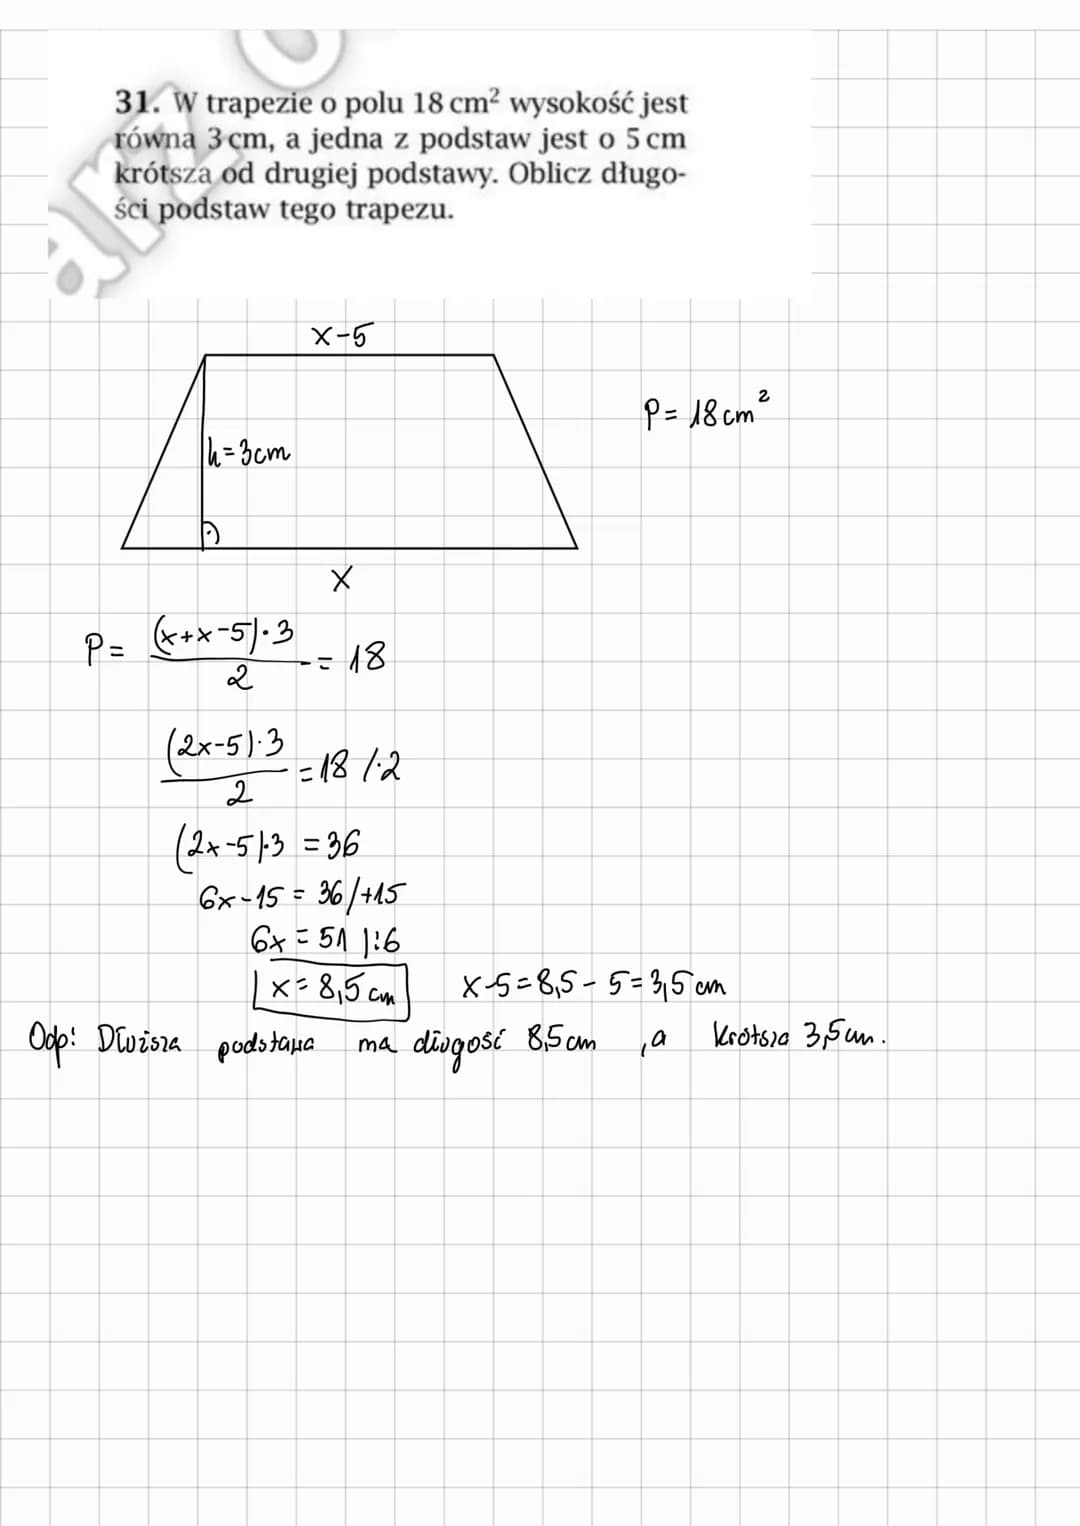 31. W trapezie o polu 18 cm² wysokość jest
równa 3 cm, a jedna z podstaw jest o 5 cm
krótsza od drugiej podstawy. Oblicz długo-
ści podstaw tego trapezu.
x-5
P= 18cm²
h=3cm
x
P= (x+x-5)·3/2 = 18
(2x-5)·3/2 = 18 /·2
(2x-5)·3 = 36
6x-15 = 36/+15
6x = 51 |:6
x = 8,5 cm x-5=8,5-5=3,5cm
Odp: Dłuższa podstawa ma długość 8,5cm , a krótsza 3,5cm.